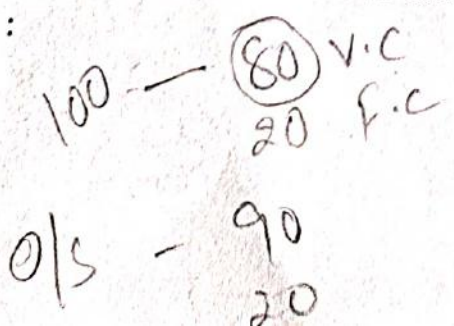 :
100 — 80 V.C
20 F.C
O/S - 90
20